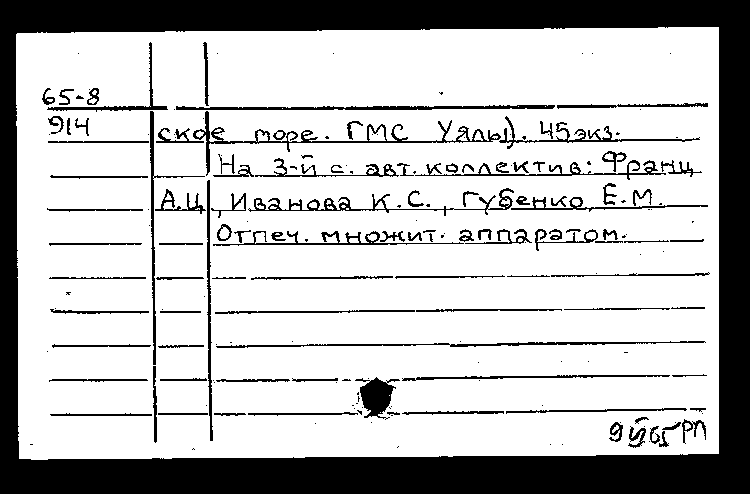 65-8
914
ское море. ГМС Уялы). 45экз.
На 3-й с. авт. коллектив: Франц
А.Ц., Иванова К.С., Губенко Е.М.
Отпеч. множит. аппаратом.
РП